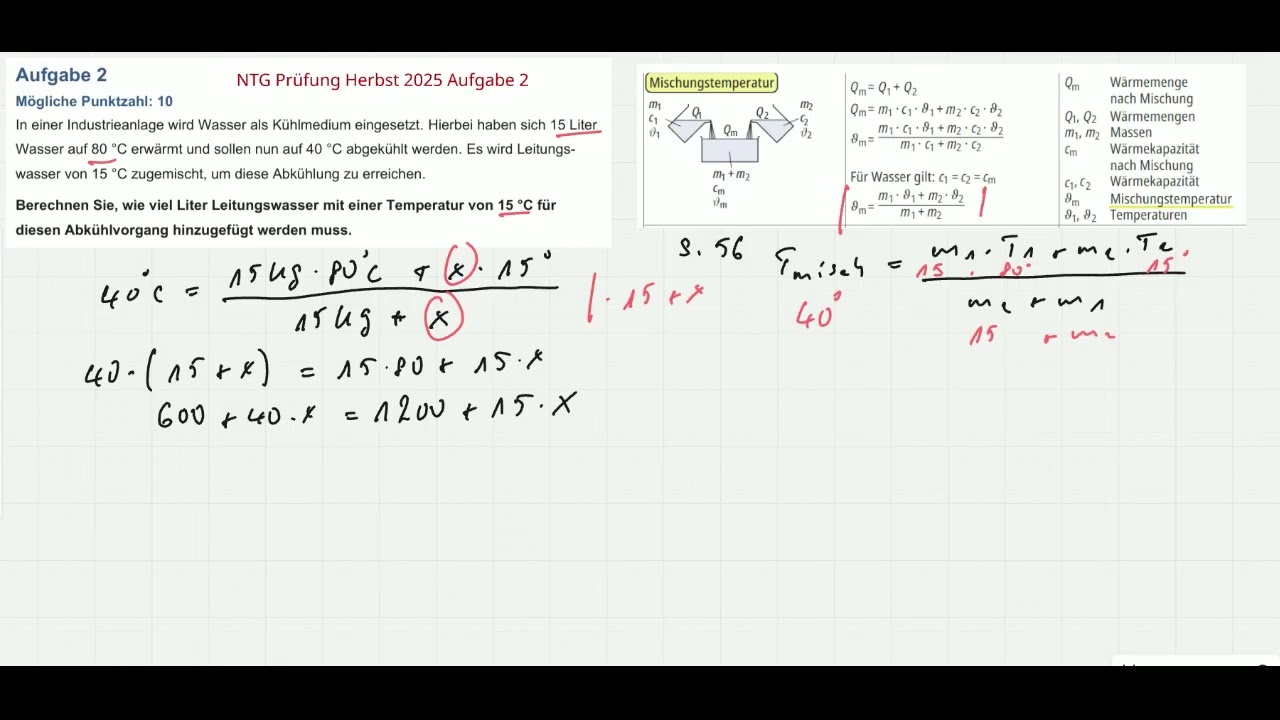 Aufgabe 2
NTG Prüfung Herbst 2025 Aufgabe 2
Mögliche Punktzahl: 10
In einer Industrieanlage wird Wasser als Kühlmedium eingesetzt. Hierbei haben sich 15 Liter
Wasser auf 80 °C erwärmt und sollen nun auf 40 °C abgekühlt werden. Es wird Leitungs-
wasser von 15 °C zugemischt, um diese Abkühlung zu erreichen.
Berechnen Sie, wie viel Liter Leitungswasser mit einer Temperatur von 15 °C für
diesen Abkühlvorgang hinzugefügt werden muss.
Mischungstemperatur
m₁
c₁
ϑ₁
Q₁
Qm
Q₂
m₂
c₂
ϑ₂
m₁ + m₂
cm
ϑm
Qm = Q₁ + Q₂
Qm = m₁ · c₁ · ϑ₁ + m₂ · c₂ · ϑ₂
ϑm = (m₁ · c₁ · ϑ₁ + m₂ · c₂ · ϑ₂) / (m₁ · c₁ + m₂ · c₂)
Für Wasser gilt: c₁ = c₂ = cm
ϑm = (m₁ · ϑ₁ + m₂ · ϑ₂) / (m₁ + m₂)
Qm Wärmemenge
nach Mischung
Q₁, Q₂ Wärmemengen
m₁, m₂ Massen
cm Wärmekapazität
nach Mischung
c₁, c₂ Wärmekapazität
ϑm Mischungstemperatur
ϑ₁, ϑ₂ Temperaturen
S. 56 Tmisch = (m₁ · T₁ + m₂ · T₂) / (m₂ + m₁)
40° 15 · 80° 15°
15 + m₂
40°C = (15 kg · 80°C + x · 15°) / (15 kg + x) | · 15 + x
40 · (15 + x) = 15 · 80 + 15 · x
600 + 40 · x = 1200 + 15 · x